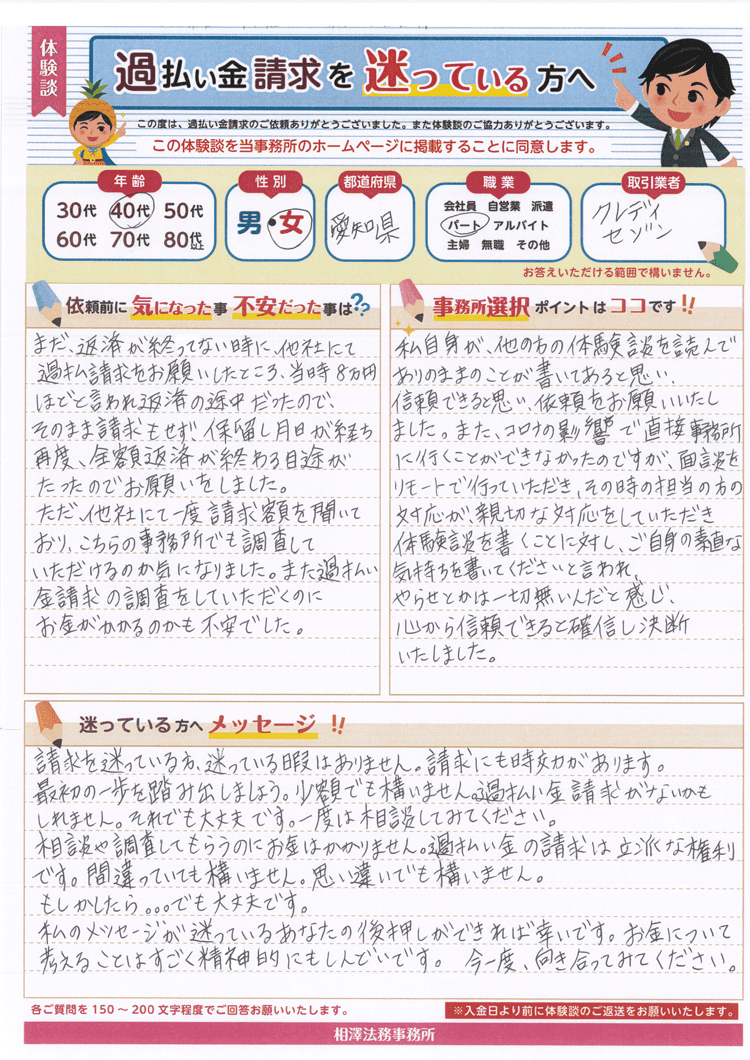 体験談
過払い金請求を迷っている方へ
この度は、過払い金請求のご依頼ありがとうございました。また体験談のご協力ありがとうございます。
この体験談を当事務所のホームページに掲載することに同意します。
年齢
30代 40代 50代
60代 70代 80代以上
性別
男・女
都道府県
愛知県
職業
会社員 自営業 派遣
パート アルバイト
主婦 無職 その他
取引業者
クレディ
セゾン
お答えいただける範囲で構いません。
依頼前に気になった事 不安だった事は??
まだ、返済が終ってない時に、他社にて
過払請求をお願いしたところ、当時8万円
ほどと言われ返済の途中だったので、
そのまま請求もせず、保留し月日が経ち
再度、全額返済が終わる目途が
たったのでお願いをしました。
ただ、他社にて一度請求額を聞いて
おり、こちらの事務所でも調査して
いただけるのか気になりました。また過払い
金請求の調査をしていただくのに
お金がかかるのかも不安でした。
事務所選択ポイントはココです!!
私自身が、他の方の体験談を読んで
ありのままのことが書いてあると思い、
信頼できると思い、依頼をお願いいたし
ました。また、コロナの影響で直接事務所
に行くことができなかったのですが、面談を
リモートで行っていただき、その時の担当の方の
対応が、親切な対応をしていただき
体験談を書くことに対し、ご自身の素直な
気持ちを書いてくださいと言われ、
やらせとかは一切無いんだと感じ、
心から信頼できると確信し決断
いたしました。
迷っている方へメッセージ!!
請求を迷っている方、迷っている暇はありません。請求にも時効があります。
最初の一歩を踏み出しましよう。少額でも構いません。過払い金請求がないかも
しれません。それでも大丈夫です。一度は相談してみてください。
相談や調査してもらうのにお金はかかりません。過払い金の請求は立派な権利
です。間違っていても構いません。思い違いでも構いません。
もしかしたら。。。でも大丈夫です。
私のメッセージが迷っているあなたの後押しができれば幸いです。お金について
考えることはすごく精神的にもしんどいです。 今一度、向き合ってみてください。
各ご質問を150～200文字程度でご回答お願いいたします。
※入金日より前に体験談のご返送をお願いいたします。
相澤法務事務所